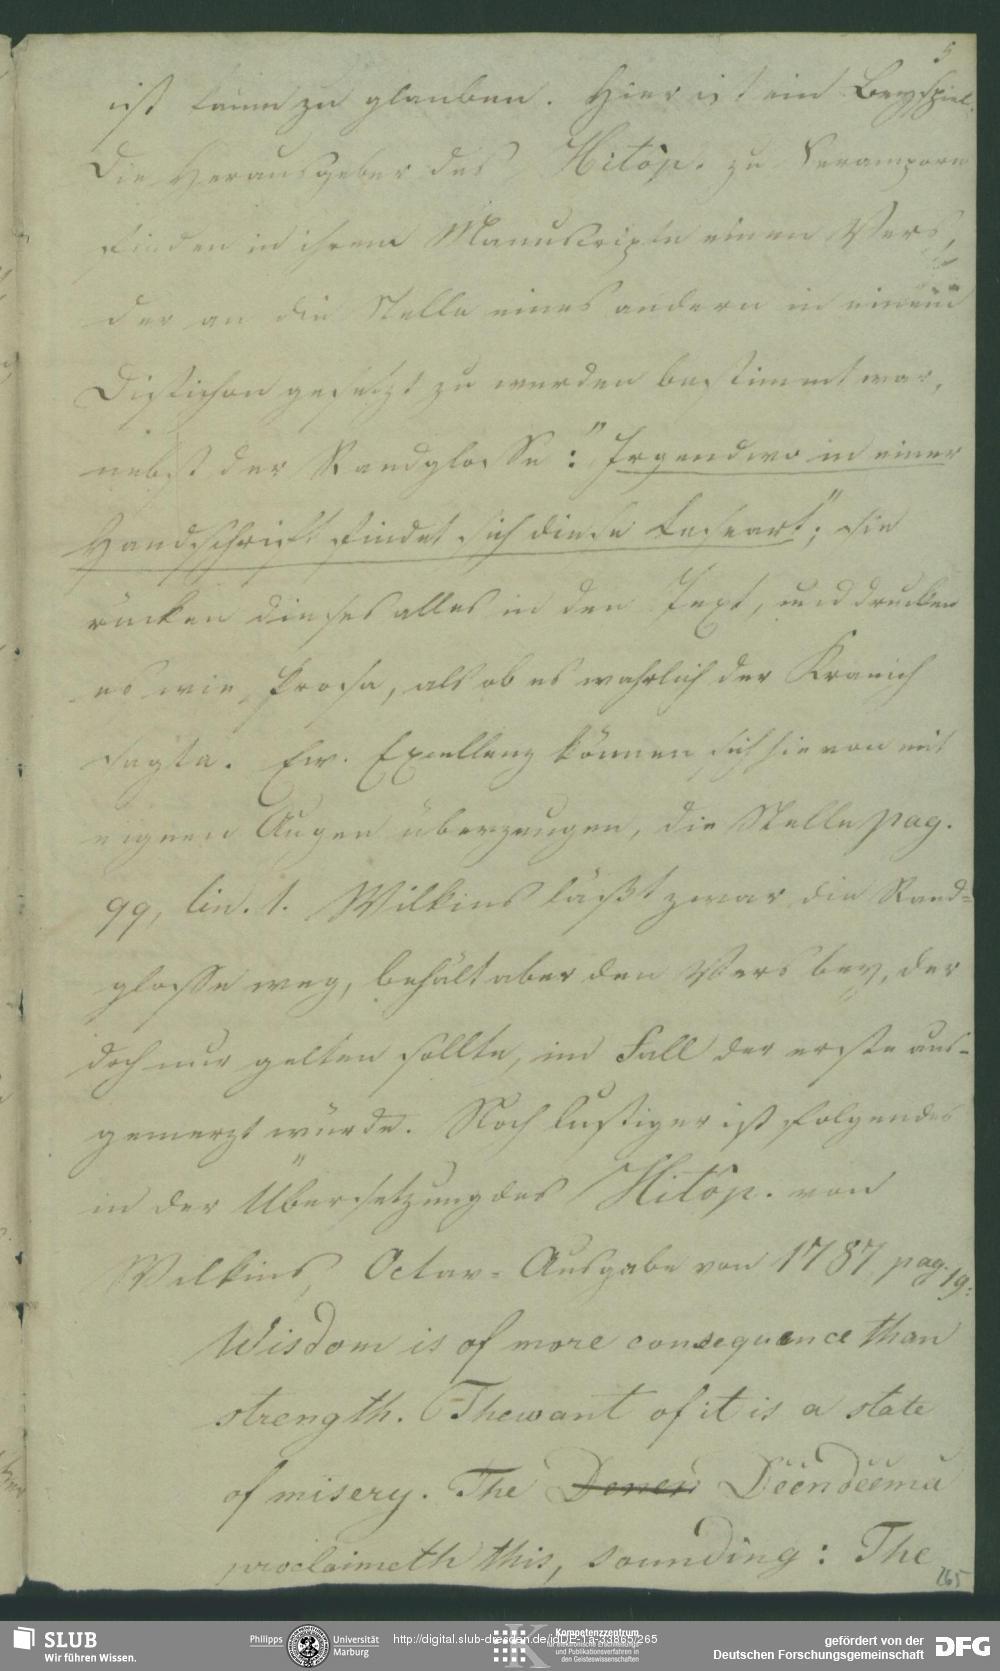 5
ist kaum zu glauben. Hier ist ein Beyspiel.
Die Herausgeber des Hitôp. zu Serampore
finden in ihrem Manuscripte einen Vers,
der an die Stelle eines andern in einem
Distichon gesetzt zu werden bestimmt war,
nebst der Randglosse: "Irgendwo in einer
Handschrift findet sich diese Leseart"; sie
rücken dieses alles in den Text, und drucken
es wie Prosa, als ob es wahrlich der Kranich
sagte. Ew. Excellenz können sich hievon mit
eignen Augen überzeugen, die Stelle pag.
99, lin. 1. Wilkins läßt zwar die Rand=
glosse weg, behält aber den Vers bey, der
doch nur gelten sollte, im Fall der erste aus-
gemerzt würde. Noch lustiger ist folgendes
in der Übersetzung des Hitôp. von
Wilkins, Octav-Ausgabe von 1787 pag. 19:
Wisdom is of more consequence than
strength. The want of it is a state
of misery. The Dĕĕndĕĕmă
proclaimeth this, sounding: The
265
SLUB
Wir führen Wissen.
Philipps Universität
Marburg
http://digital.slub-dresden.de/idDE-1a-33865/265
Kompetenzzentrum
für elektronische Erschließungs-
und Publikationsverfahren in
den Geisteswissenschaften
gefördert von der
Deutschen Forschungsgemeinschaft
DFG